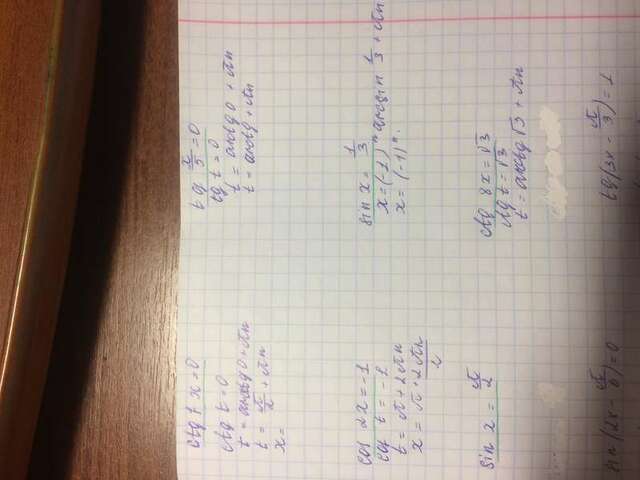 ctg 7 x = 0
ctg t = 0
t = arcctg 0 + πn
t = π/2 + πn
x =
tg x/5 = 0
tg t = 0
t = arctg 0 + πn
t = arctg + πn
cos 2x = -1
cos t = -1
t = π + 2πn
x = π + 2πn/2
sin x = 1/3
x = (-1)ⁿ arcsin 1/3 + πn
x = (-1)ⁿ ·
sin x = π/2
ctg 8x = √3
ctg t = √3
t = arcctg √3 + πn
sin (2x - π/6) = 0
tg (3x - π/3) = 1